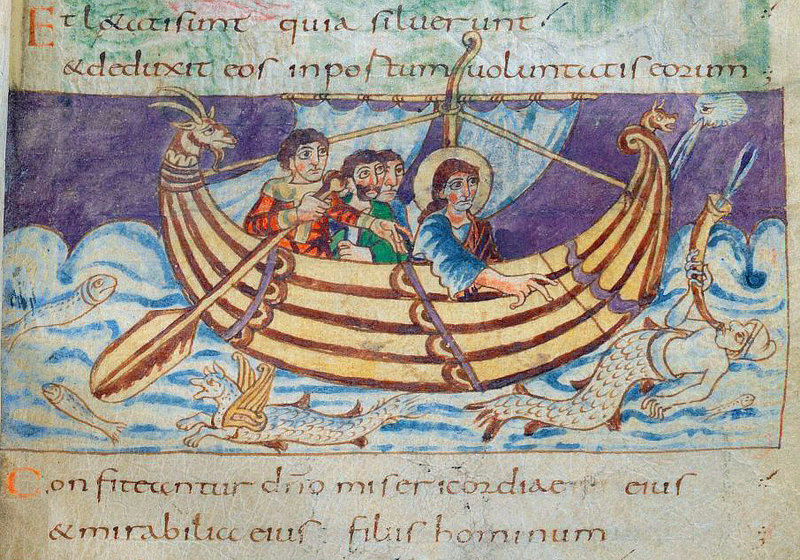 Et lætatisunt quia siluerunt·
&deduxit eos inportum uoluntatis eorum ;
Confiteantur dño misericordiae eius
&mirabilia eius filiis hominum